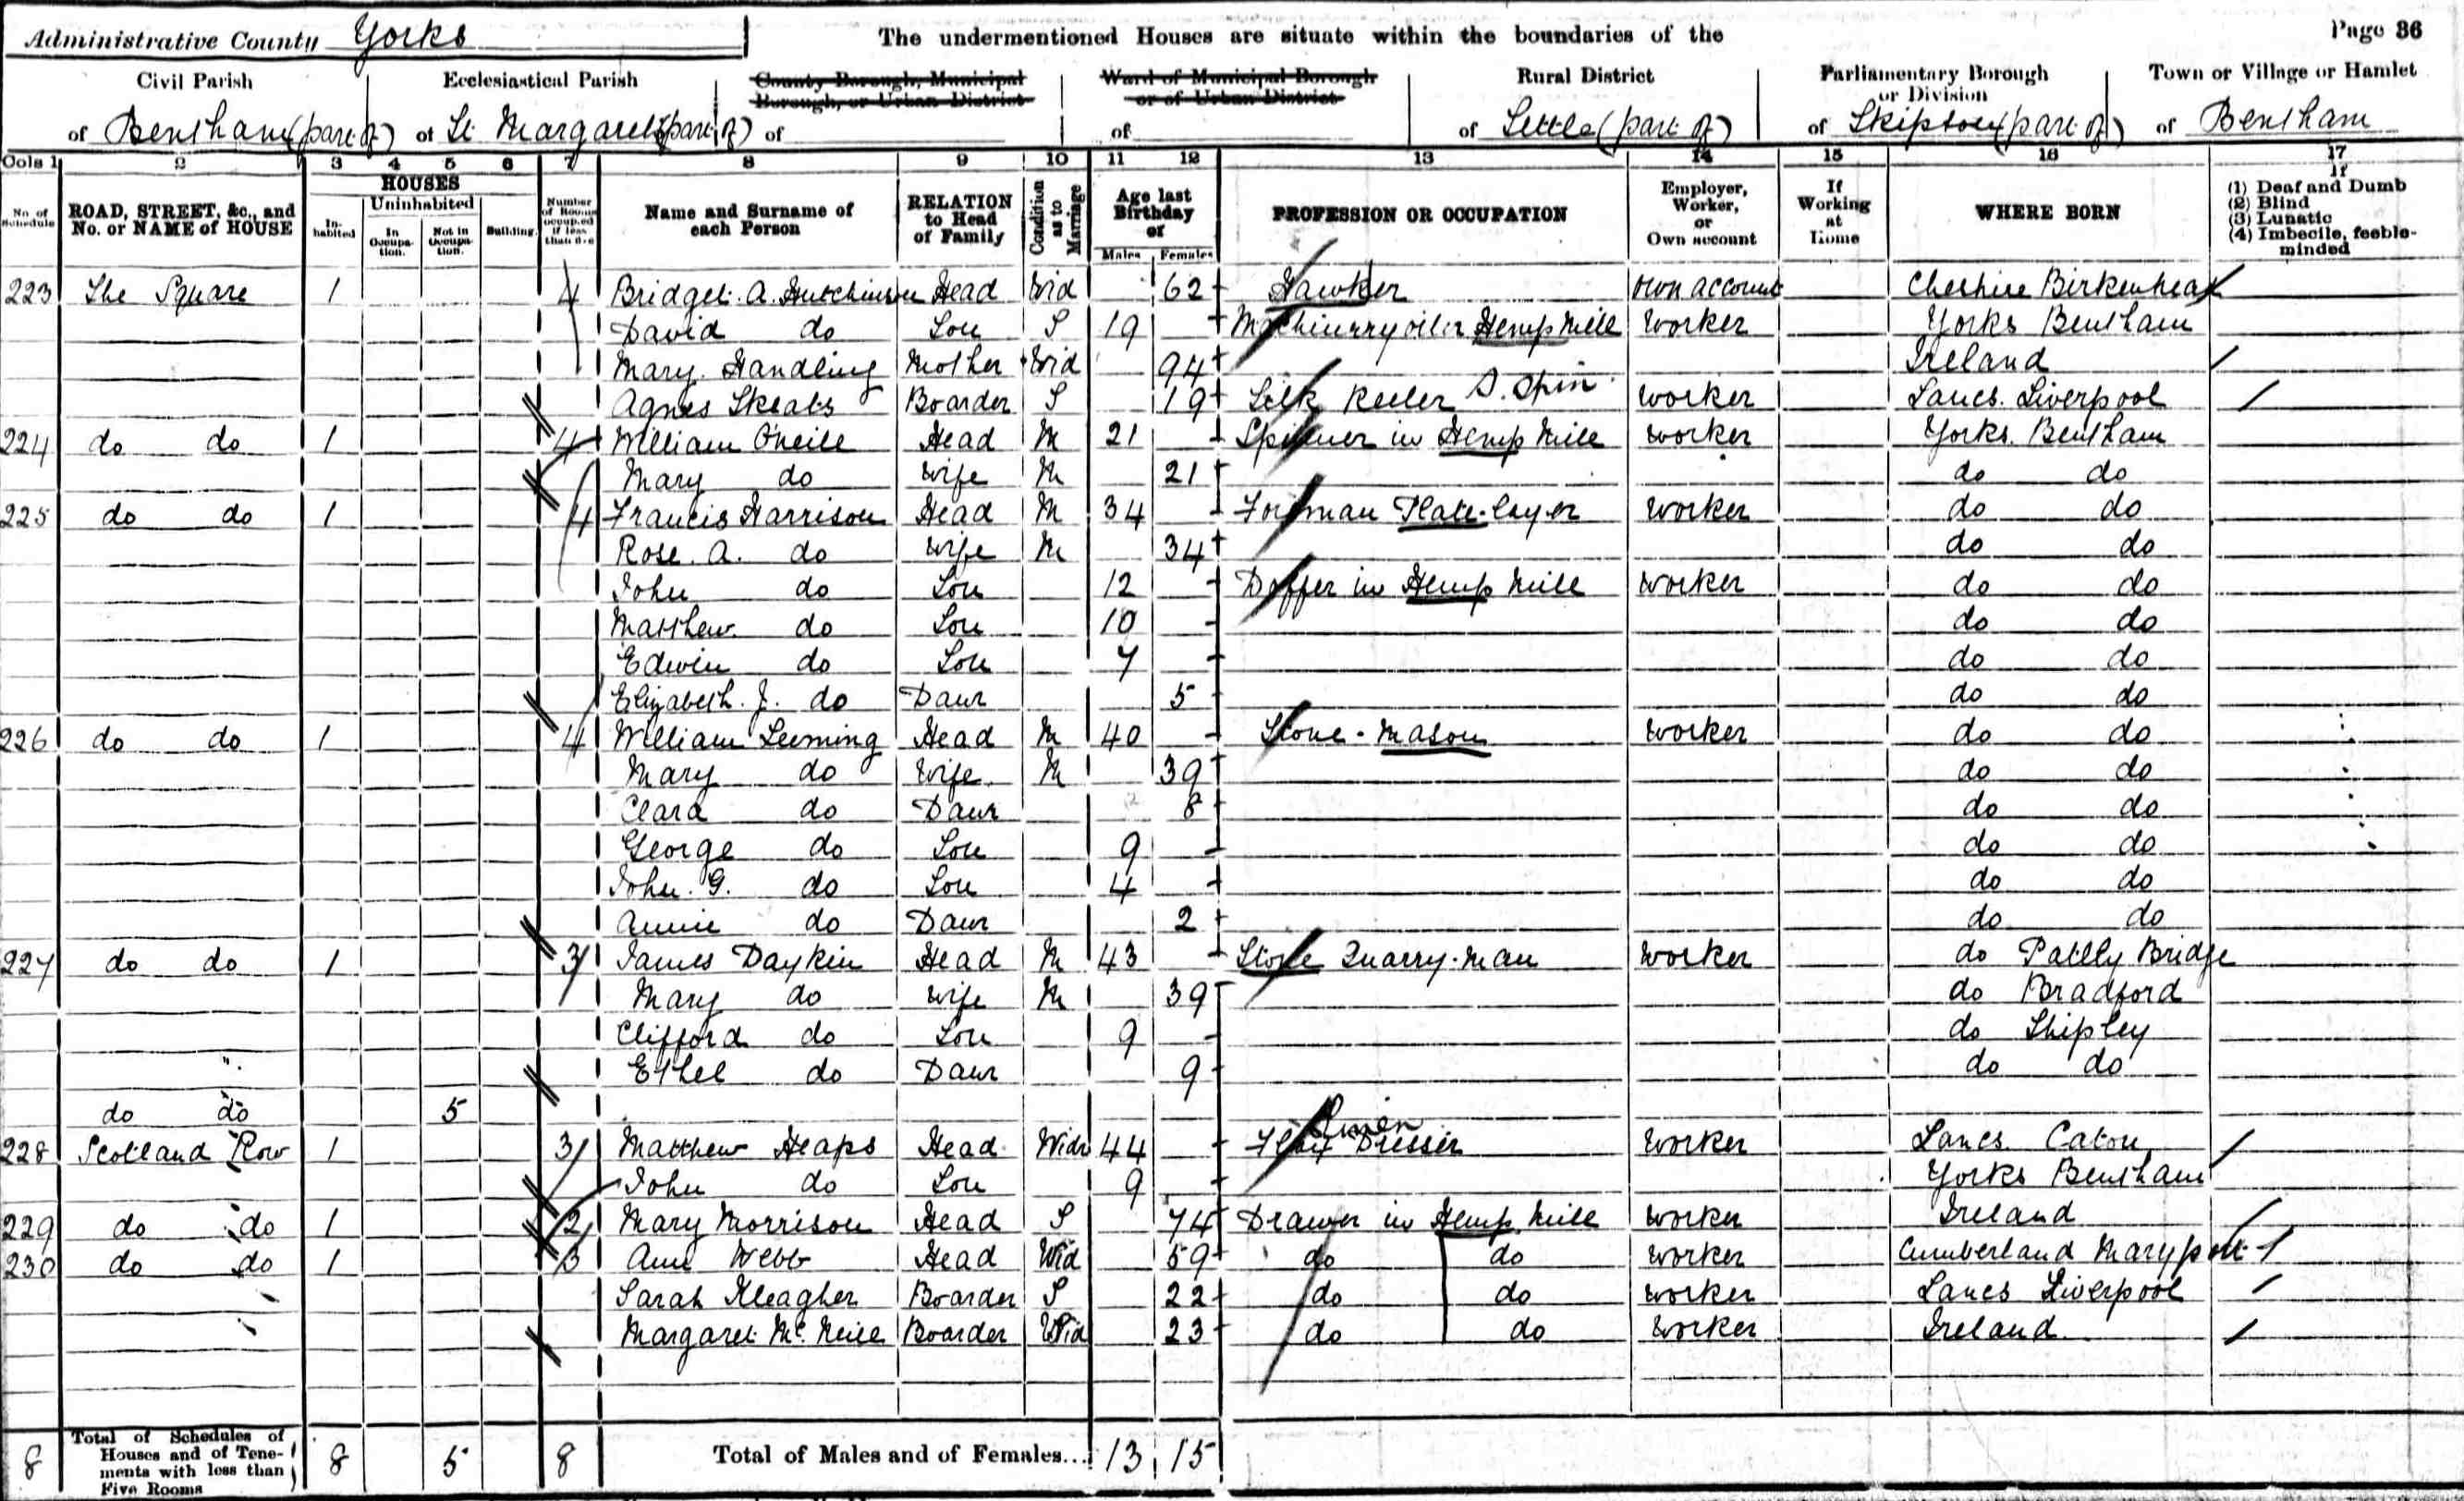 Administrative County Yorks The undermentioned Houses are situate within the boundaries of the Page 36
Civil Parish Ecclesiastical Parish County Borough, Municipal Borough, or Urban District Ward of Municipal Borough or of Urban District Rural District Parliamentary Borough or Division Town or Village or Hamlet
of Bentham (part of) of St. Margarets (part of) of of of Settle (part of) of Skipton (part of) of Bentham
Cols 1 2 3 4 5 6 7 8 9 10 11 12 13 14 15 16 17
No. of Schedule ROAD, STREET, &c., and No. or NAME of HOUSE HOUSES Inhabited Uninhabited In Occupation. Not in Occupation. Building. Number of Rooms occupied if less than five Name and Surname of each Person RELATION to Head of Family Condition as to Marriage Age last Birthday of Males Females PROFESSION OR OCCUPATION Employer, Worker, or Own account If Working at Home WHERE BORN If (1) Deaf and Dumb (2) Blind (3) Lunatic (4) Imbecile, feeble-minded
223 The Square 1 4 Bridget. A. Hutchinson Head Wid 62 Hawker own account Cheshire Birkenhead
David do Son S 19 Machinery oiler Hemp Mill Worker Yorks Bentham
Mary. Handling Mother Wid 94 Ireland
Agnes Skeats Boarder S 19 Silk Reeler S. Spin. Worker Lancs. Liverpool
224 do do 1 4 William O'Neill Head M 21 Spinner in Hemp Mill Worker Yorks. Bentham
Mary do Wife M 21 do do
225 do do 1 4 Francis Harrison Head M 34 Foreman Plate-layer Worker do do
Rose. A. do Wife M 34 do do
John do Son 12 Doffer in Hemp Mill Worker do do
Matthew do Son 10 do do
Edwin do Son 7 do do
Elizabeth. J. do Daur 5 do do
226 do do 1 4 William Leeming Head M 40 Stone-Mason Worker do do
Mary do Wife. M 39 do do
Clara do Daur 8 do do
George do Son 9 do do
John. G. do Son 4 do do
Annie do Daur 2 do do
227 do do 1 3 James Daykin Head M 43 Stone Quarry-Man Worker do Patlly Bridge
Mary do Wife M 39 do Bradford
Clifford do Son 9 do Shipley
Ethel do Daur 9 do do
do do 5
228 Scotland Row 1 3 Matthew Heaps Head Widr 44 Flax Dresser Linen Worker Lancs. Caton
John do Son 9 Yorks Bentham
229 do do 1 2 Mary Morrison Head S 74 Drawer in Hemp Mill Worker Ireland
230 do do 1 3 Ann Webb Head Wid 59 do do Worker Cumberland Maryport
Sarah Kleagher Boarder S 22 do do Worker Lancs Liverpool
Margaret Mc. Neill Boarder Wid 23 do do Worker Ireland
8 Total of Schedules of Houses and of Tenements with less than Five Rooms 8 5 8 Total of Males and of Females... 13 15